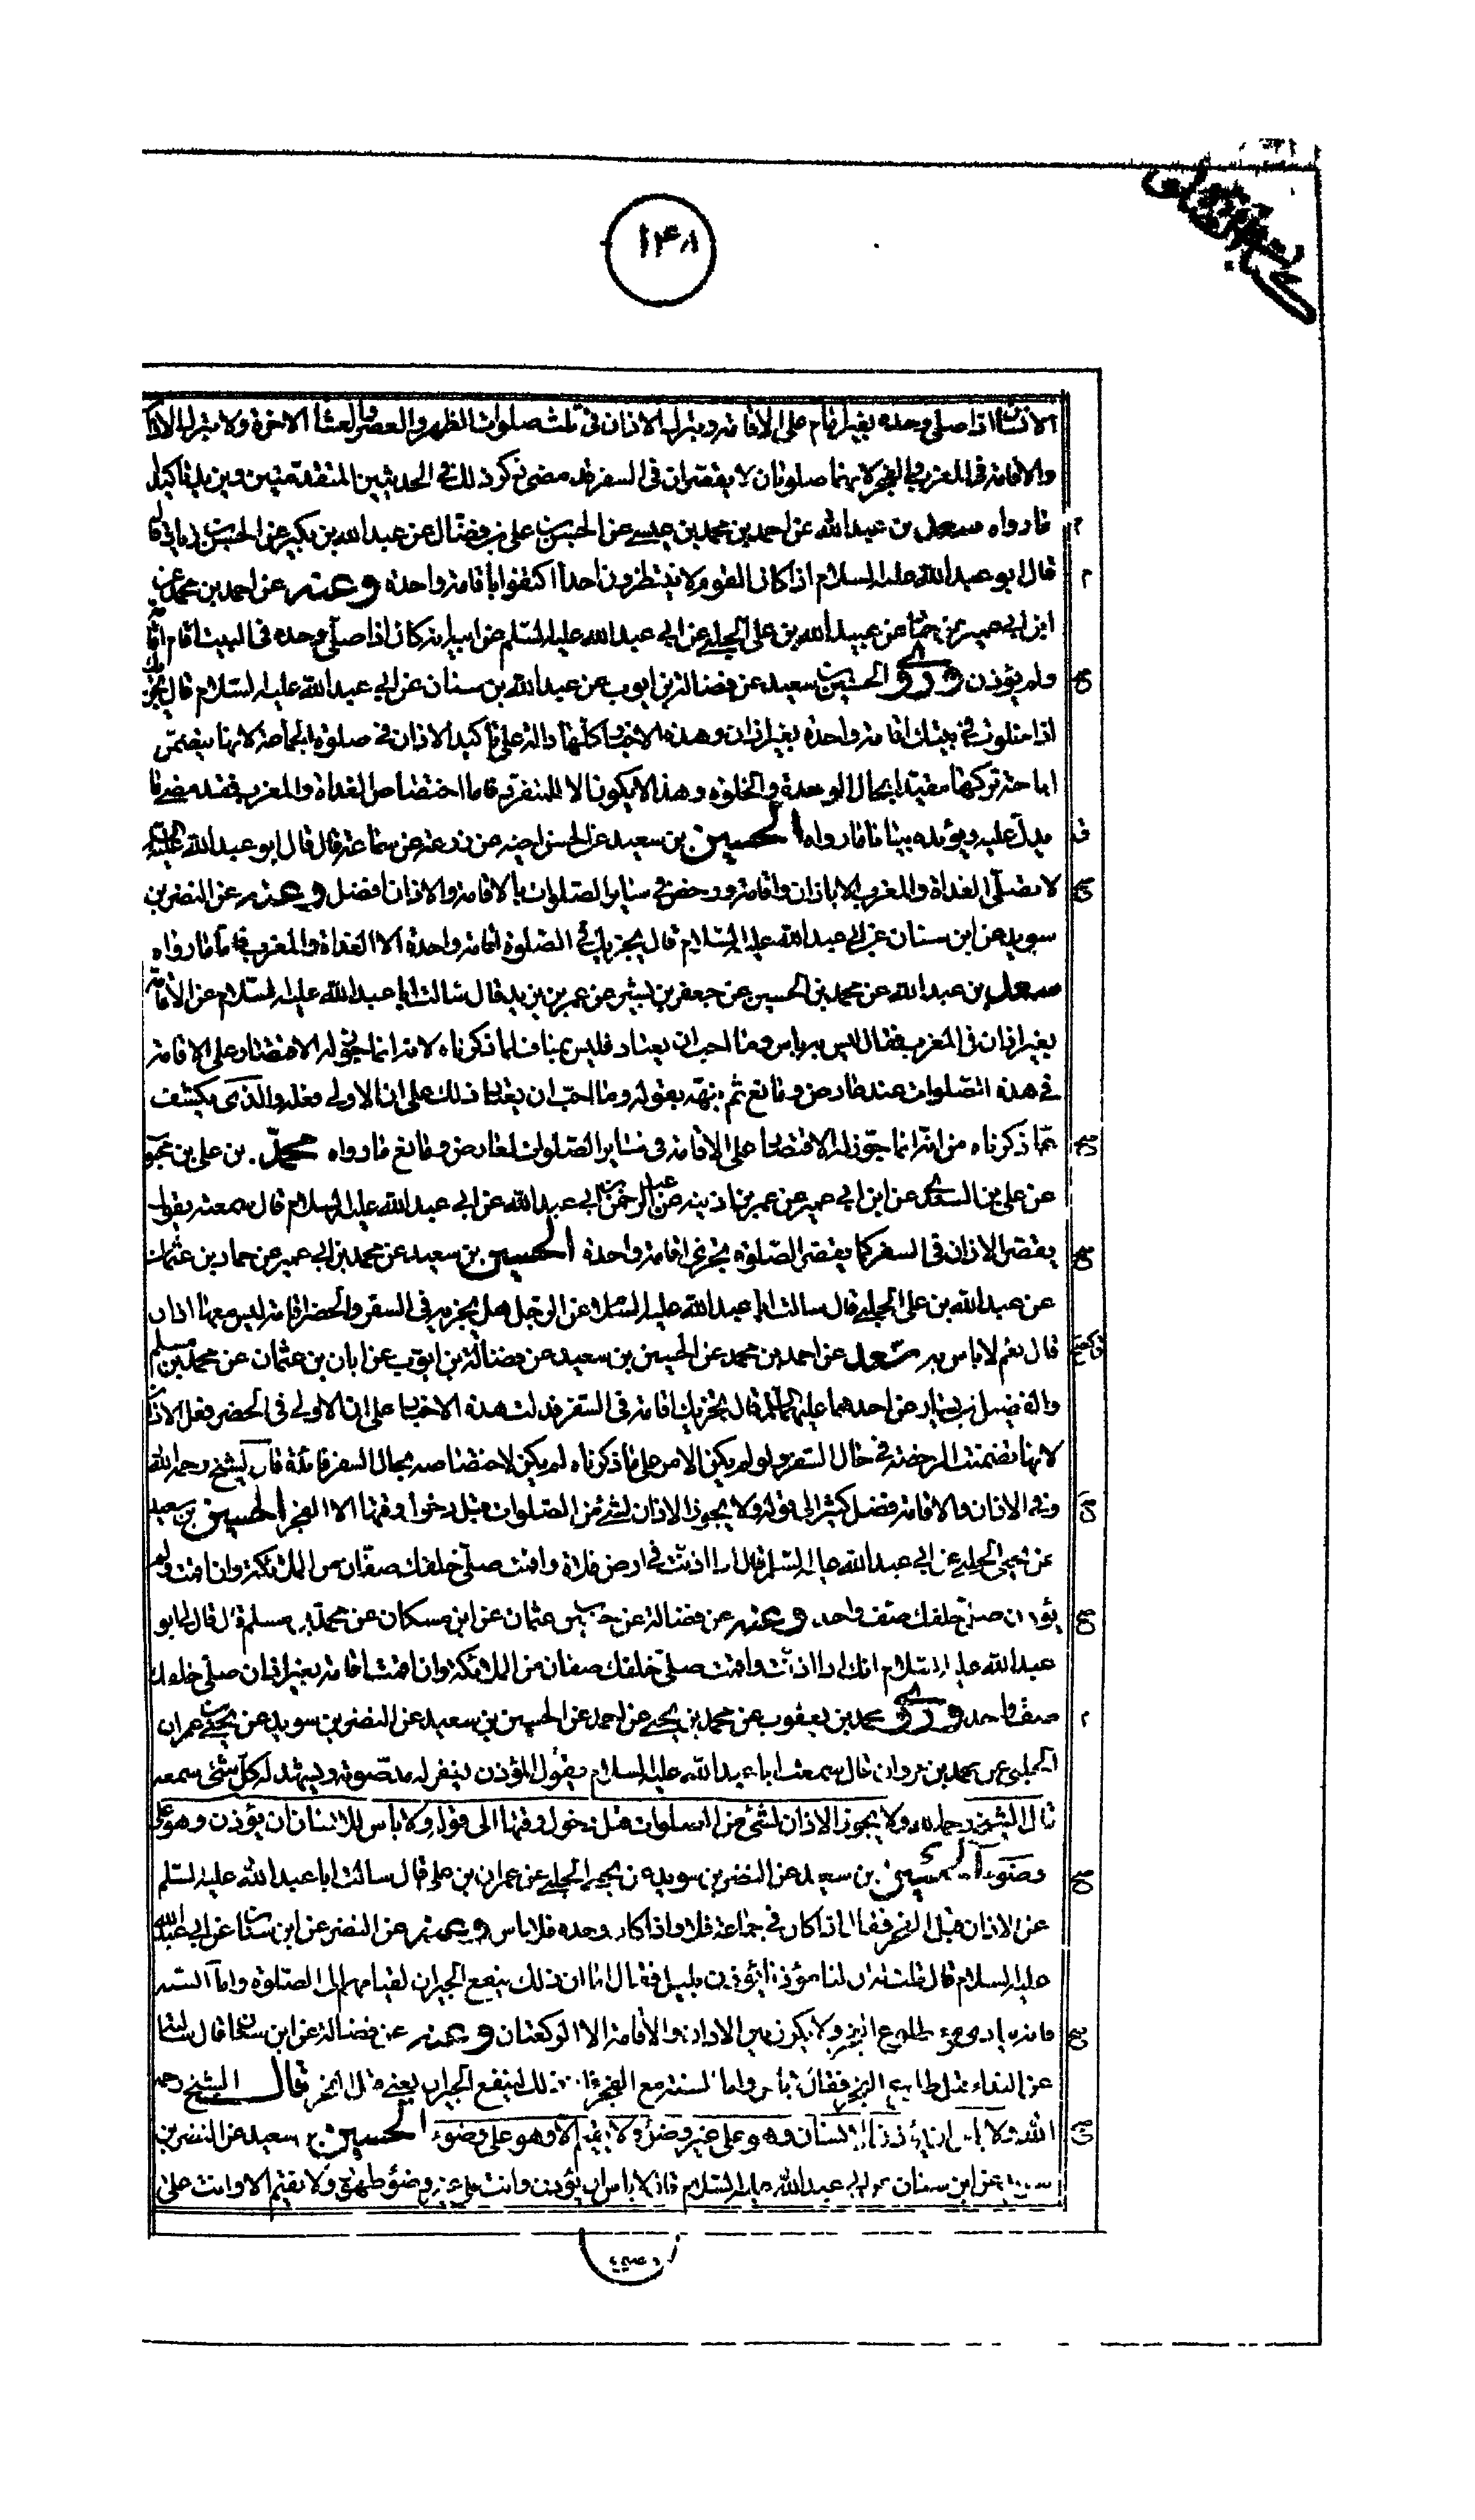 ١٤٨
الانسان اذا صلى وحده بغير امام على الاقامة ويترك الاذان في ثلث صلوات الظهر والعصر والعشا الاخرة ولا يترك الاذا
والاقامة في المغرب والفجر لانهما صلوتان لا يقصران في السفر قد مضى ذكر ذلك في الحديثين المتقدمين ويزيده تاكيدا
ما رواه سعد بن عبد الله عن احمد بن محمد بن عيسى عن الحسن بن علي بن فضال عن عبد الله بن بكير عن الحسن بن زياد قا
قال ابو عبد الله عليه السلام اذا كان القوم لا ينتظرون احدا اكتفوا باقامة واحدة وعنه عن احمد بن محمد عن
ابن ابي عمير عن حماد عن عبيد الله بن علي الحلبي عن ابي عبد الله عليه السلم عن ابيه انه كان اذا صلى وحده في البيت اقام اقامة
ولم يؤذن وروى الحسين بن سعيد عن فضالة بن ايوب عن عبد الله بن سنان عن ابي عبد الله عليه السلام قال يجزيك
اذا خلوت في بيتك اقامة واحدة بغير اذان وهذه الاخبار كلها دالة على تاكيد الاذان في صلوة الجماعة لانها يتضمن
اباحة تركها مقيدا بحال الوحدة والخلوة وهذا لا يكون الا للمنفرد فاما اختصاص الغداة والمغرب فقد مضى ما
يدل عليه ويؤيده بيانا ما رواه الحسين بن سعيد عن الحسن اخيه عن زرعة عن سماعة قال قال ابو عبد الله عليه السلام
لا تصلى الغداة والمغرب الا باذان واقامة ورخص في ساير الصلوات بالاقامة والاذان افضل وعنه عن النضر بن
سويد عن ابن سنان عن ابي عبد الله عليه السلام قال يجزيك في الصلوة اقامة واحدة الا الغداة والمغرب فاما ما رواه
سعد بن عبد الله عن محمد بن الحسين عن جعفر بن بشير عن عمر بن يزيد قال سالت ابا عبد الله عليه السلام عن الاقامة
بغير اذان في المغرب فقال ليس به باس وما احب ان يعتاد فليس بمناف لما ذكرناه لانه انما يجوز له الاقتصار على الاقامة
في هذه الصلوات عند عارض ومانع ثم نبه بقوله وما احب ان يعتاد ذلك على ان الاولى فعله والذي يكشف
عما ذكرناه من انه انما جوز له الاقتصار على الاقامة في ساير الصلوات لعارض ومانع ما رواه محمد بن علي بن محبوب
عن علي بن السندي عن ابن ابي عمير عن عمر بن اذينة عن عبد الرحمن بن ابي عبد الله عن ابي عبد الله عليه السلام قال سمعته يقول
يقصر الاذان في السفر كما يقصر الصلوة يجزي اقامة واحدة الحسين بن سعيد عن محمد بن ابي عمير عن حماد بن عثمان
عن عبد الله بن علي الحلبي قال سالت ابا عبد الله عليه السلم عن الرجل هل يجزيه في السفر والحضر اقامة ليس معها اذان
قال نعم لا باس به سعد عن احمد بن محمد عن الحسين بن سعيد عن فضالة بن ايوب عن ابان بن عثمان عن محمد بن مسلم
والفضيل بن يسار عن احدهما عليهما السلم قال يجزيك اقامة في السفر فدلت هذه الاخبار على ان الاولى في الحضر فعل الاذان
لانها تضمنت الرخصة في حال السفر ولو لم يكن الامر على ما ذكرناه لم يكن لاختصاصه بحال السفر فائدة قال الشيخ رحمه الله
وفي الاذان والاقامة فضل كثير الى قوله ولا يجوز الاذان لشئ من الصلوات قبل دخول وقتها الا الفجر الحسين بن سعيد
عن يحيى الحلبي عن ابي عبد الله عليه السلم قال اذا اذنت في ارض فلاة واقمت صلى خلفك صفان من الملئكة وان اقمت ولم
تؤذن صلى خلفك صف واحد وعنه عن فضالة عن حسين بن عثمان عن ابن مسكان عن محمد بن مسلم قال قال لي ابو
عبد الله عليه السلام انك اذا اذنت واقمت صلى خلفك صفان من الملائكة وان اقمت اقامة بغير اذان صلى خلفك
صف واحد وروى محمد بن يعقوب عن محمد بن يحيى عن احمد عن الحسين بن سعيد عن النضر بن سويد عن يحيى بن عمران
الحلبي عن محمد بن مروان قال سمعت ابا عبد الله عليه السلام يقول المؤذن يغفر له مد صوته ويشهد له كل شئ سمعه
قال الشيخ رحمه الله ولا يجوز الاذان لشئ من الصلوات قبل دخول وقتها الى قوله ولا باس للانسان ان يؤذن وهو على
وضوء الحسين بن سعيد عن النضر بن سويد عن يحيى الحلبي عن عمران بن علي قال سالت ابا عبد الله عليه السلم
عن الاذان قبل الفجر فقال اذا كان في جماعة فلا واذا كان وحده فلا باس وعنه عن النضر عن ابن سنان عن ابي عبد الله
عليه السلام قال قلت له ان لنا مؤذنا يؤذن بليل فقال اما ان ذلك ينفع الجيران لقيامهم الى الصلوة واما السنة
فانه ينادى مع طلوع الفجر ولا يكون بين الاذان والاقامة الا الركعتان وعنه عن فضالة عن ابن سنان قال سالته
عن النداء قبل طلوع الفجر فقال لا باس واما السنة مع الفجر وان ذلك لينفع الجيران يعني قبل الفجر قال الشيخ رحمه
الله ولا باس ان يؤذن الانسان وهو على غير وضوء ولا يقيم الا وهو على وضوء الحسين بن سعيد عن النضر بن
سويد عن ابن سنان عن ابي عبد الله عليه السلام قال لا باس ان تؤذن وانت على غير وضوء طهور ولا تقيم الا وانت على
وضوء